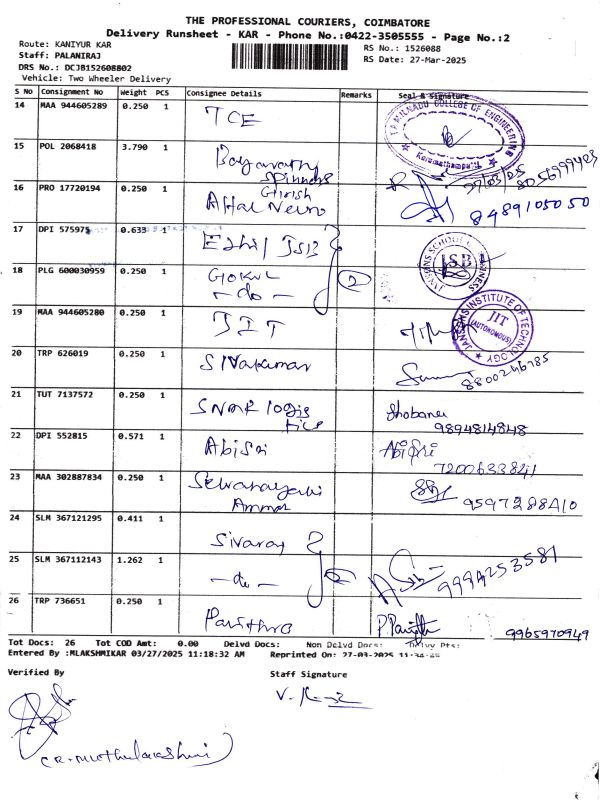 THE PROFESSIONAL COURIERS, COIMBATORE
Delivery Runsheet - KAR - Phone No.:0422-3505555 - Page No.:2
Route: KANIYUR KAR
RS No.: 1526088
Staff: PALANIRAJ
RS Date: 27-Mar-2025
DRS No.: DCJB152608802
Vehicle: Two Wheeler Delivery
S No Consignment No Weight PCS Consignee Details Remarks Seal & Signature
14 MAA 944605289 0.250 1 TCE
TAMILNADU COLLEGE OF ENGINEERING
Karumathampatti
15 POL 2068418 3.790 1
Spinners
27/03/25 8056999423
16 PRO 17720194 0.250 1 Girish
8489105050
17 DPI 575975 0.633 1 Ezhil JSB
JANSONS SCHOOL OF BUSINESS
JSB
18 PLG 600030959 0.250 1 Gokul
- do - 2
19 MAA 944605280 0.250 1 JIT
JANSONS INSTITUTE OF TECHNOLOGY
JIT
(AUTONOMOUS)
20 TRP 626019 0.250 1 Sivakumar
8800246785
21 TUT 7137572 0.250 1 SNMR logis
tics
Shobana
9894814848
22 DPI 552815 0.571 1 Abisri Abisri
7200633841
23 MAA 302887834 0.250 1
Ammal
9597288410
24 SLM 367121295 0.411 1 Sivaraj
25 SLM 367112143 1.262 1 - do - 2
9994253581
26 TRP 736651 0.250 1 Pavithra P. Pavithra
9965970949
Tot Docs: 26 Tot COD Amt: 0.00 Delvd Docs: Non Delvd Docs: Delvy Pts:
Entered By :MLAKSHMIKAR 03/27/2025 11:18:32 AM Reprinted On: 27-03-2025
Verified By
Staff Signature